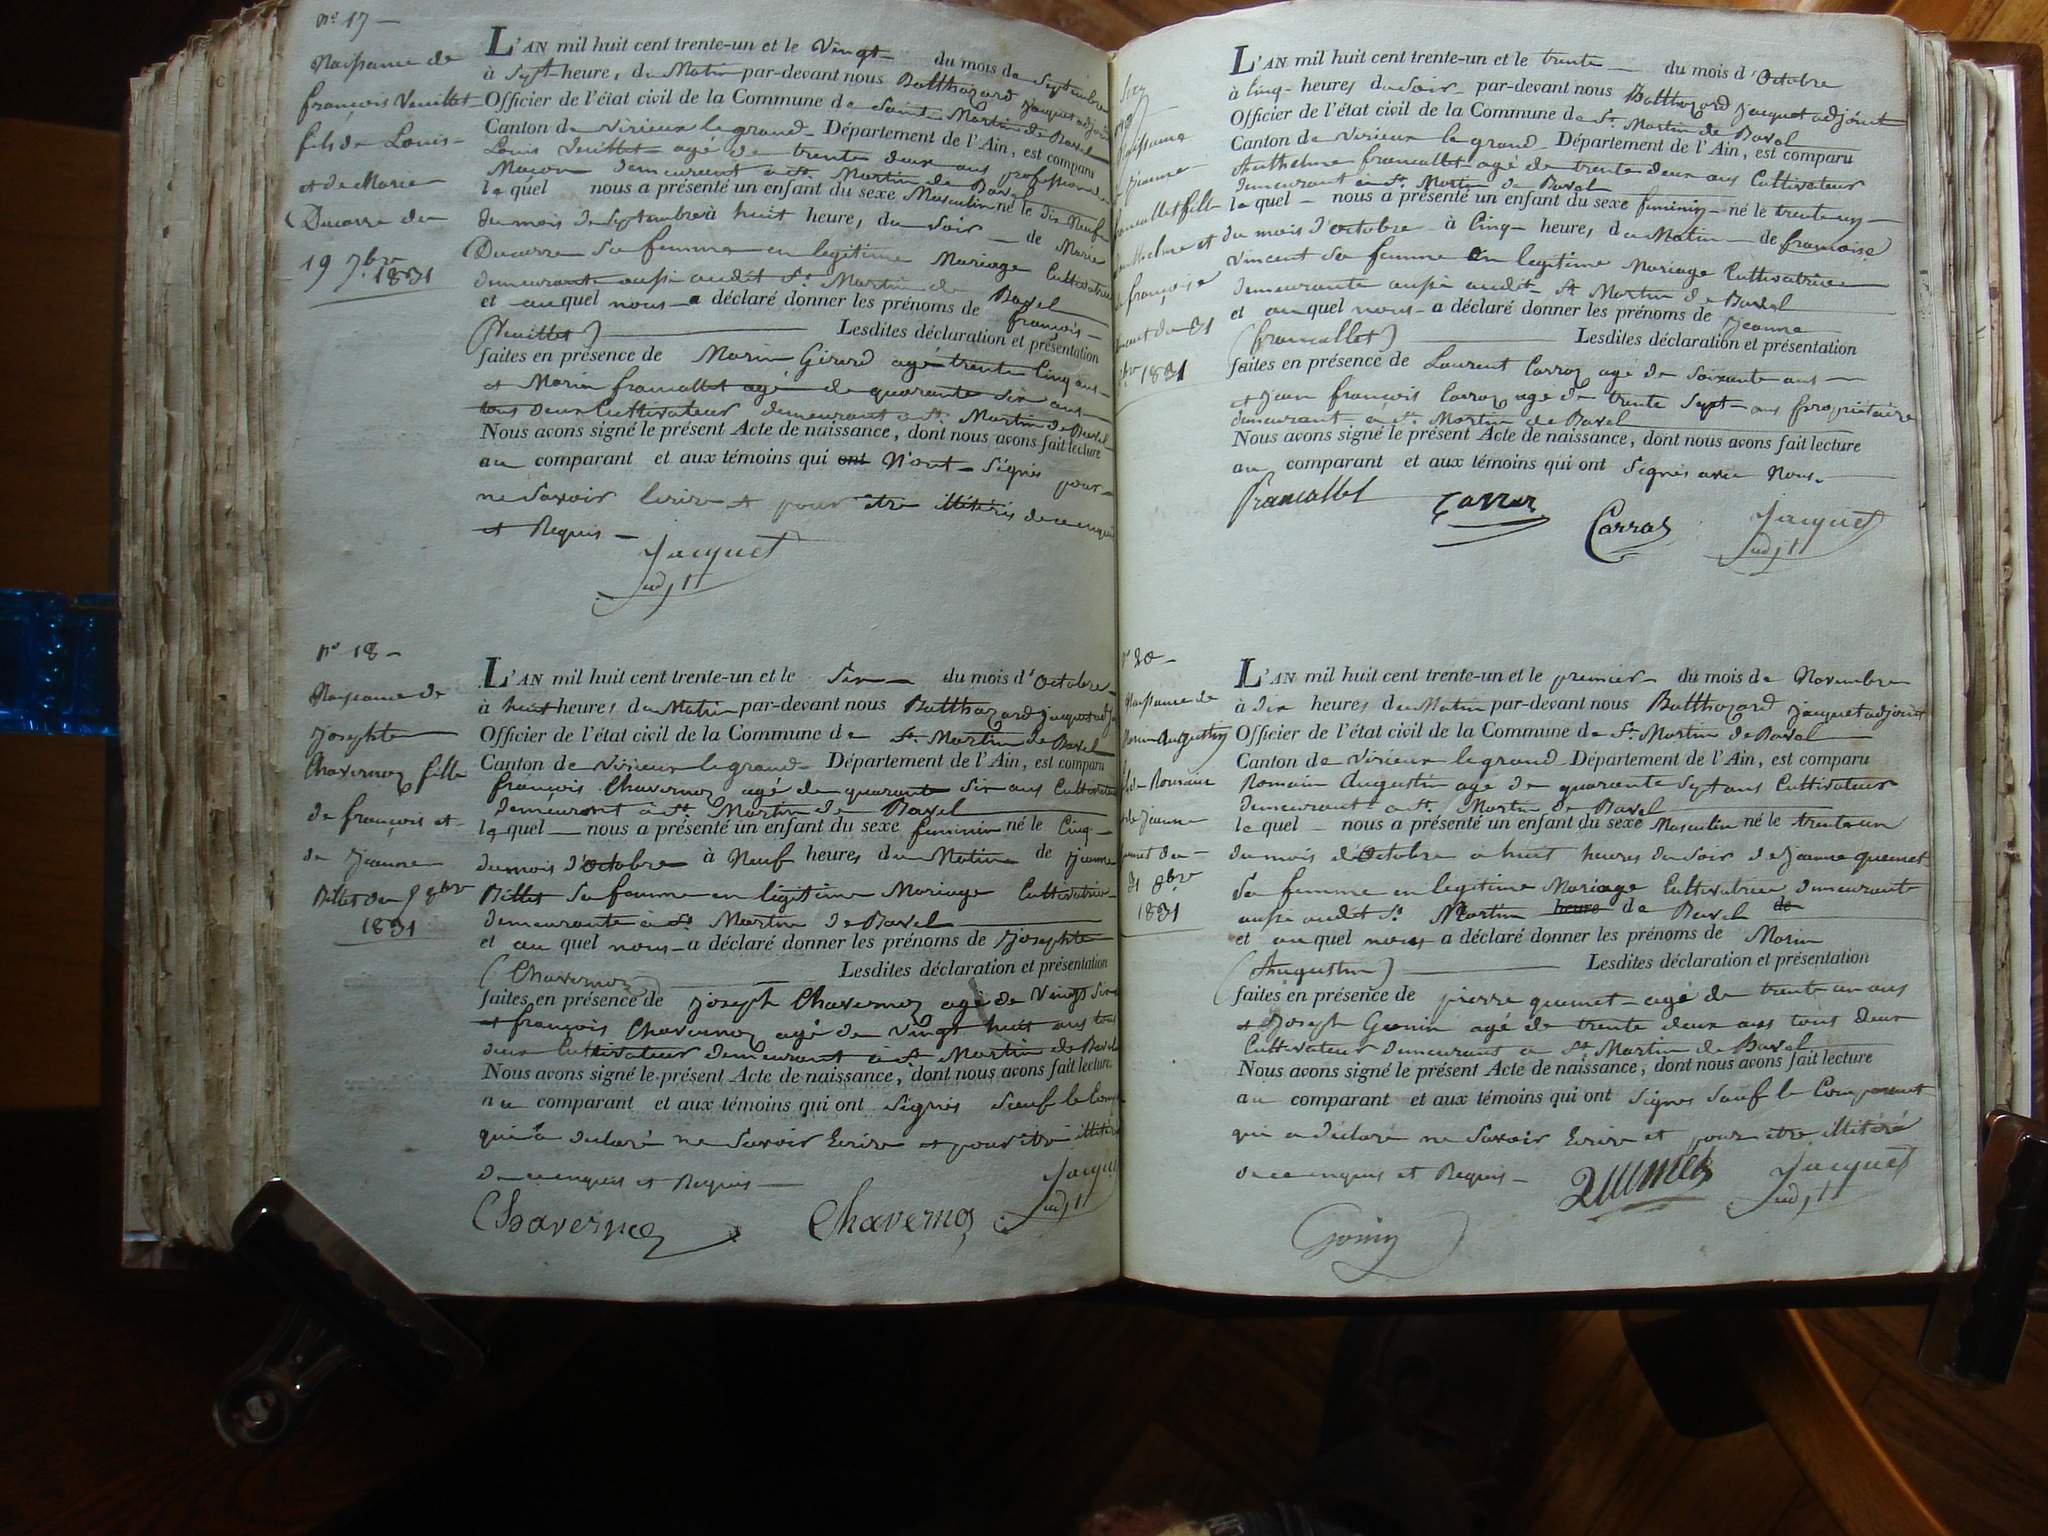 n° 17 —
Naissance de
françois Veuillet
fils de Louis
et de Marie
Ducarre du
19 7bre
1831
L'AN mil huit cent trente-un et le Vingt du mois de Septembre
à Sept heure, du Matin par-devant nous Balthazard jacquet adjoint
Officier de l'état civil de la Commune de Saint Martin de Bavel
Canton de Virieux le grand Département de l'Ain, est comparu
Louis Veuillet agé de trente deux ans profession de
Maçon demeurant à St. Martin de Bavel
lequel nous a présenté un enfant du sexe Masculin né le dix Neuf
du mois de Septembre à huit heure, du Soir de Marie
Ducarre sa femme en legitime Mariage Cultivatrice
demeurante aussi audit St. Martin de Bavel
et auquel nous a déclaré donner les prénoms de françois
(Veuillet) Lesdites déclaration et présentation
faites en présence de Marin Girard agé trente Cinq ans
et Marin francallet agé de quarante six ans
tous deux Cultivateur demeurant a St. Martin de Bavel
Nous avons signé le présent Acte de naissance, dont nous avons fait lecture
au comparant et aux témoins qui ont N'ont Signés pour
ne Savoir Ecrire et pour être illitérés de ce enquis
et Requis —
Jacquet
adjt
n° 18 —
Naissance de
josephte
Chavernoz fille
de françois et
de jeanne
Billet du 5 8bre
1831
L'AN mil huit cent trente-un et le Six du mois d'Octobre
à huit heures du Matin par-devant nous Balthazard jacquet adj
Officier de l'état civil de la Commune de St. Martin de Bavel
Canton de Virieux le grand Département de l'Ain, est comparu
françois Chavernoz agé de quarante six ans Cultivateur
demeurant à St. Martin de Bavel
lequel nous a présenté un enfant du sexe feminin né le Cinq
du mois d'Octobre à Neuf heures du Matin de jeanne
Billet Sa femme en légitime Mariage Cultivatrice
demeurante à St. Martin de Bavel
et au quel nous a déclaré donner les prénoms de josephte
(Chavernoz) Lesdites déclaration et présentation
faites en présence de joseph Chavernoz agé de Vingt Six
et françois Chavernoz agé de vingt huit ans tous
deux Cultivateur demeurant à St Martin de Bavel
Nous avons signé le présent Acte de naissance, dont nous avons fait lecture
au comparant et aux témoins qui ont Signés Sauf le Comp
qui a déclaré ne Savoir Ecrire et pour être illitéré
de ce enquis et Requis —
Jacquet
adjt
Chavernoz Chavernoz
Naissance
jeanne
francallet fille
Anthelme et
françoise
Vincent du 31
8bre 1831
L'AN mil huit cent trente-un et le trente du mois d'Octobre
à Cinq heures du Soir par-devant nous Balthazard jacquet adjoint
Officier de l'état civil de la Commune de St. Martin de Bavel
Canton de Virieux le grand Département de l'Ain, est comparu
Anthelme francallet agé de trente deux ans Cultivateur
demeurant à St. Martin de Bavel
lequel nous a présenté un enfant du sexe feminin né le trente un
du mois d'Octobre à Cinq heures, du Matin de françoise
Vincent Sa femme en legitime Mariage Cultivatrice
demeurante aussi audit St Martin de Bavel
et auquel nous a déclaré donner les prénoms de jeanne
(francallet) Lesdites déclaration et présentation
faites en présence de Laurent Carraz agé de Soixante ans
et jean françois Carraz agé de trente Sept ans propriétaire
demeurant a St. Martin de Bavel
Nous avons signé le présent Acte de naissance, dont nous avons fait lecture
au comparant et aux témoins qui ont Signés avec Nous.
francallet Carraz Carraz Jacquet
adjt
n° 20 —
Naissance de
Marin Augustin
fils de Romain
et de jeanne
quemet du
31 8bre
1831
L'AN mil huit cent trente-un et le premier du mois de Novembre
à dix heures du Matin par-devant nous Balthazard jacquet adjoint
Officier de l'état civil de la Commune de St. Martin de Bavel
Canton de Virieux le grand Département de l'Ain, est comparu
Romain Augustin agé de quarante Sept ans Cultivateur
demeurant a St. Martin de Bavel
lequel nous a présenté un enfant du sexe Masculin né le trente un
du mois d'Octobre à huit heures du Soir de jeanne quemet
Sa femme en legitime Mariage Cultivatrice demeurante
aussi audit St. Martin heure de Bavel de
et auquel nous a déclaré donner les prénoms de Marin
(Augustin) Lesdites déclaration et présentation
faites en présence de pierre quemet agé de trente un ans
et joseph Gonin agé de trente deux ans tous deux
Cultivateur demeurant a St. Martin de Bavel
Nous avons signé le présent Acte de naissance, dont nous avons fait lecture
au comparant et aux témoins qui ont Signés Sauf le Comparant
qui a déclaré ne Savoir Ecrire et pour être illitéré
de ce enquis et Requis — Quemet Jacquet
adjt
Gonin